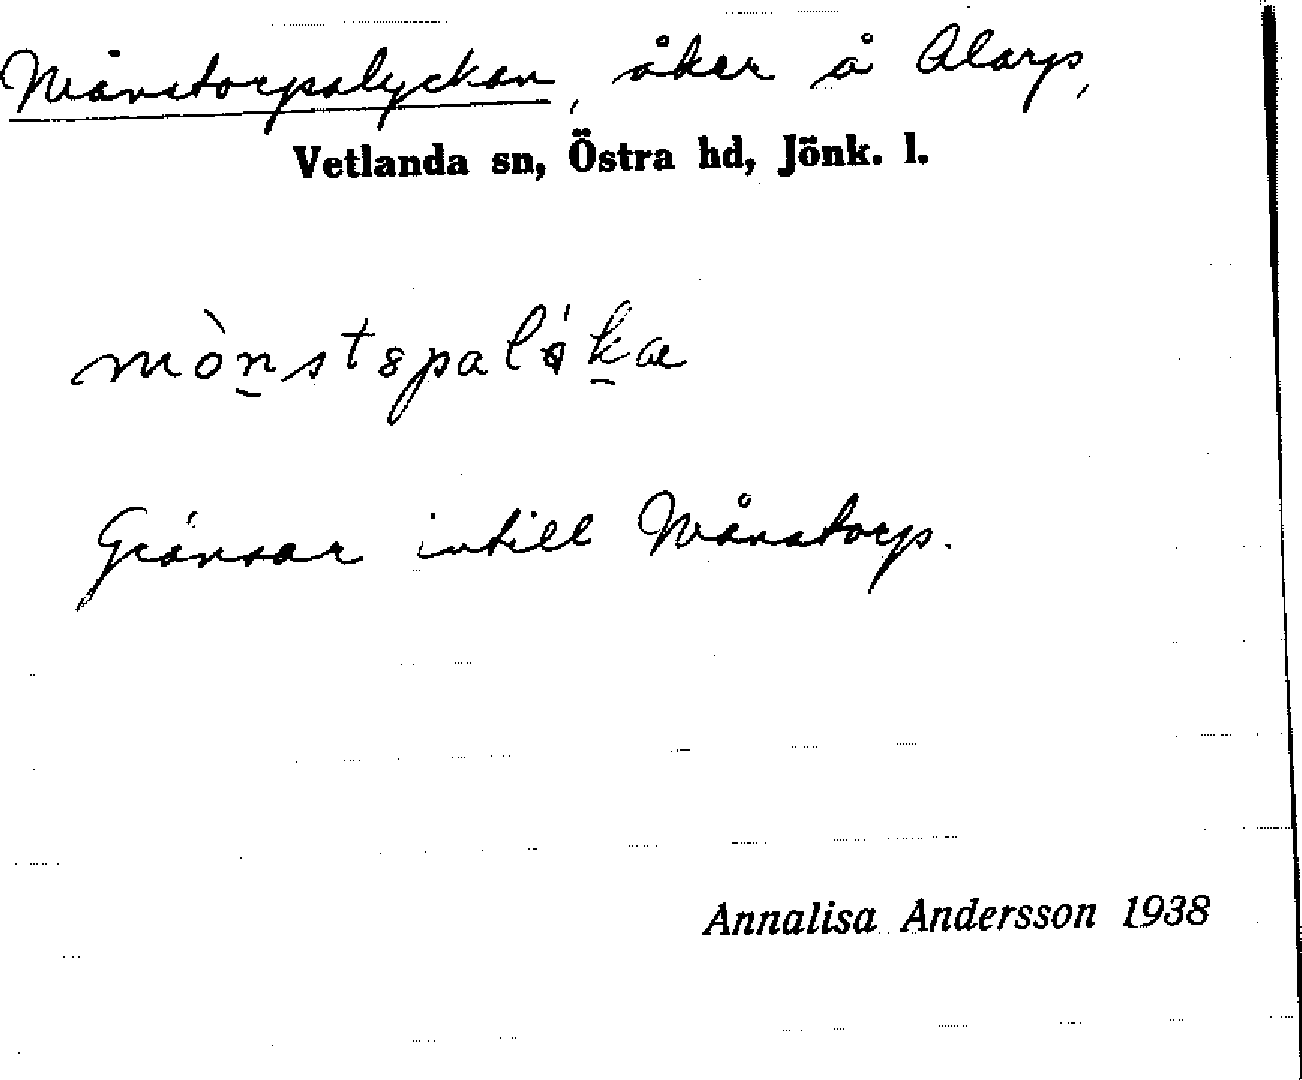 Månstorpslyckan, åker å Alarp,
Vetlanda sn, Östra hd, Jönk. l.
Gränsar intill Månstorp.
Annalisa Andersson 1938